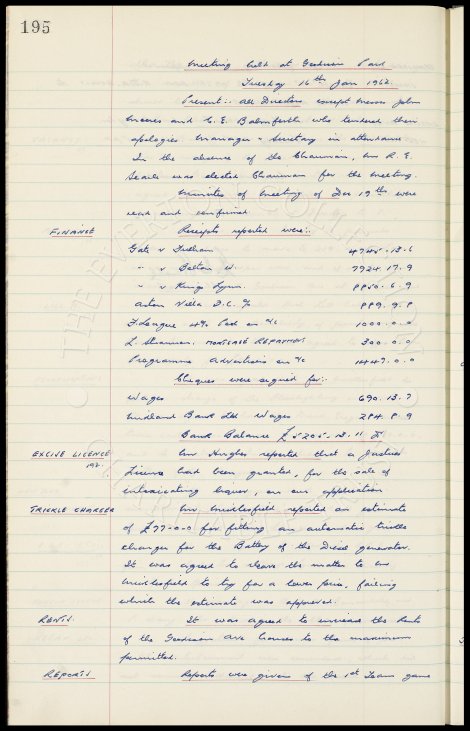 195
Meeting held at Goodison Park
Tuesday 16th Jan 1962.
Present:- All Directors except Messrs John
Moores and C. E. Balmforth who tendered their
apologies. Manager & Secretary in attendance
In the absence of the Chairman, Mr R. E.
Searle was elected Chairman for the meeting.
Minutes of Meeting of Dec 19th were
read and confirmed.
FINANCE Receipts reported were:-
Gate v Fulham 4745.13.6
" v Bolton W. 7924.17.9
" v Kings Lynn. 8850.6.9
Aston Villa F.C. % 889.9.8
F. League 4% Pool on a/c 1000.0.0
L. MORTGAGE REPAYMENT 300.0.0
Programme Advertisers on a/c 1447.0.0
Cheques were signed for:-
Wages 690.13.7
Midland Bank Ltd Wages 284.8.9
Bank Balance £5205.13.11
EXCISE LICENCE Mr Hughes reported that a Justices
192. Licence had been granted, for the sale of
intoxicating liquor, on our application
TRICKLE CHARGER Mr Micklesfield reported an estimate
of £77-0-0 for fitting an automatic trickle
charger for the Battery of the Diesel generator.
It was agreed to leave the matter to Mr
Micklesfield to try for a lower price, failing
which the estimate was approved.
RENTS. It was agreed to increase the Rents
of the Goodison Ave houses to the maximum
permitted.
REPORTS Reports were given of the 1st Team game